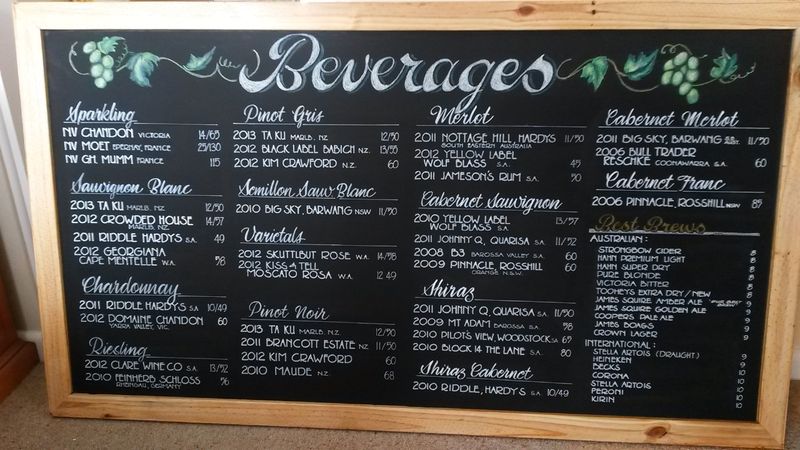 Beverages
Sparkling
NV CHANDON VICTORIA 14/65
NV MOET EPERNAY, FRANCE 25/130
NV GH. MUMM FRANCE 115
Sauvignon Blanc
2013 TA KU MARLB. NZ 12/50
2012 CROWDED HOUSE 14/57
MARLB. NZ
2011 RIDDLE HARDYS S.A. 49
2012 GEORGIANA
CAPE MENTELLE W.A. 58
Chardonnay
2011 RIDDLE HARDYS S.A 10/49
2012 DOMAINE CHANDON 60
YARRA VALLEY, VIC.
Riesling
2012 CLARE WINE CO S.A. 13/52
2010 FEINHERB SCHLOSS 56
RHEINGAU, GERMANY
Pinot Gris
2013 TA KU MARLB. NZ 12/50
2012 BLACK LABEL BABICH N.Z. 13/55
2012 KIM CRAWFORD N.Z. 60
Semillon Sauv Blanc
2010 BIG SKY, BARWANG NSW 11/50
Varietals
2012 SKUTTLBUT ROSE W.A. 14/58
2012 KISS & TELL
MOSCATO ROSA W.A. 12 49
Pinot Noir
2013 TA KU MARLB. N.Z. 12/50
2011 BRANCOTT ESTATE N.Z 11/50
2012 KIM CRAWFORD 60
2010 MAUDE N.Z 68
Merlot
2011 NOTTAGE HILL, HARDYS 11/50
SOUTH EASTERN AUSTRALIA
2012 YELLOW LABEL
WOLF BLASS S.A. 45
2011 JAMESON'S RUM S.A. 50
Cabernet Sauvignon
2010 YELLOW LABEL 13/57
WOLF BLASS S.A.
2011 JOHNNY Q, QUARISA S.A. 11/52
2008 B3 BAROSSA VALLEY S.A. 60
2009 PINNACLE, ROSSHILL 60
ORANGE N.S.W.
Shiraz
2011 JOHNNY Q, QUARISA S.A. 11/50
2009 MT ADAM BAROSSA S.A. 58
2010 PILOT'S VIEW, WOODSTOCK S.A 67
2010 BLOCK 14 THE LANE S.A. 80
Shiraz Cabernet
2010 RIDDLE, HARDYS S.A. 10/49
Cabernet Merlot
2011 BIG SKY, BARWANG 11/50
2006 BULL TRADER
RESCHKE COONAWARRA S.A. 60
Cabernet Franc
2006 PINNACLE, ROSSHILL NSW 85
Best Brews
AUSTRALIAN :
STRONGBOW CIDER 8
HAHN PREMIUM LIGHT 8
HAHN SUPER DRY 8
PURE BLONDE 8
VICTORIA BITTER 8
TOOHEYS EXTRA DRY / NEW 8
JAMES SQUIRE AMBER ALE
JAMES SQUIRE GOLDEN ALE
COOPERS PALE ALE
JAMES BOAGS
CROWN LAGER
INTERNATIONAL :
STELLA ARTOIS (DRAUGHT) 9
HEINEKEN 9
BECKS 9
CORONA 10
STELLA ARTOIS 9
PERONI 10
KIRIN 10